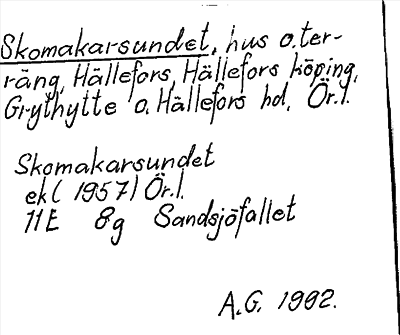 Skomakarsundet, hus o.ter-
räng, Hällefors, Hällefors köping,
Grythytte o. Hällefors hd, Ör.l.
Skomakarsundet
ek ( 1957) Ör.l.
11E 8g Sandsjöfallet
A.G. 1992.